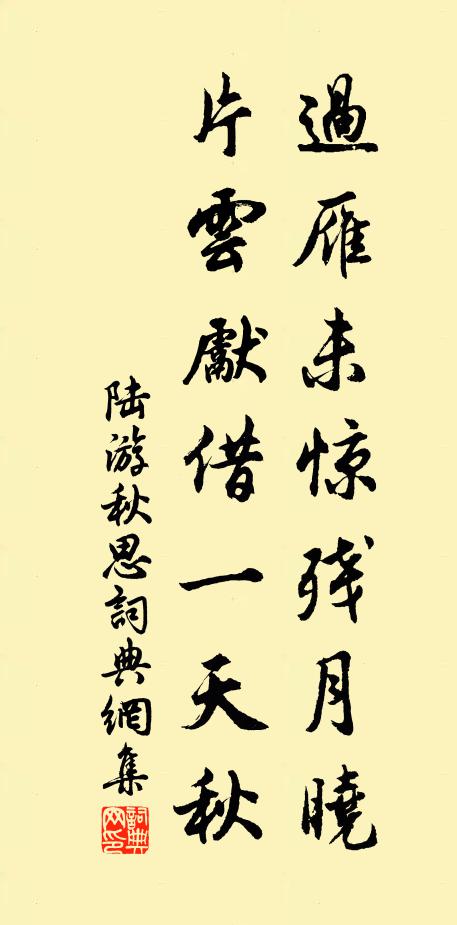 過雁未惊残月曉
片雲獻借一天秋
陆游秋思詞典網集
詞典網印